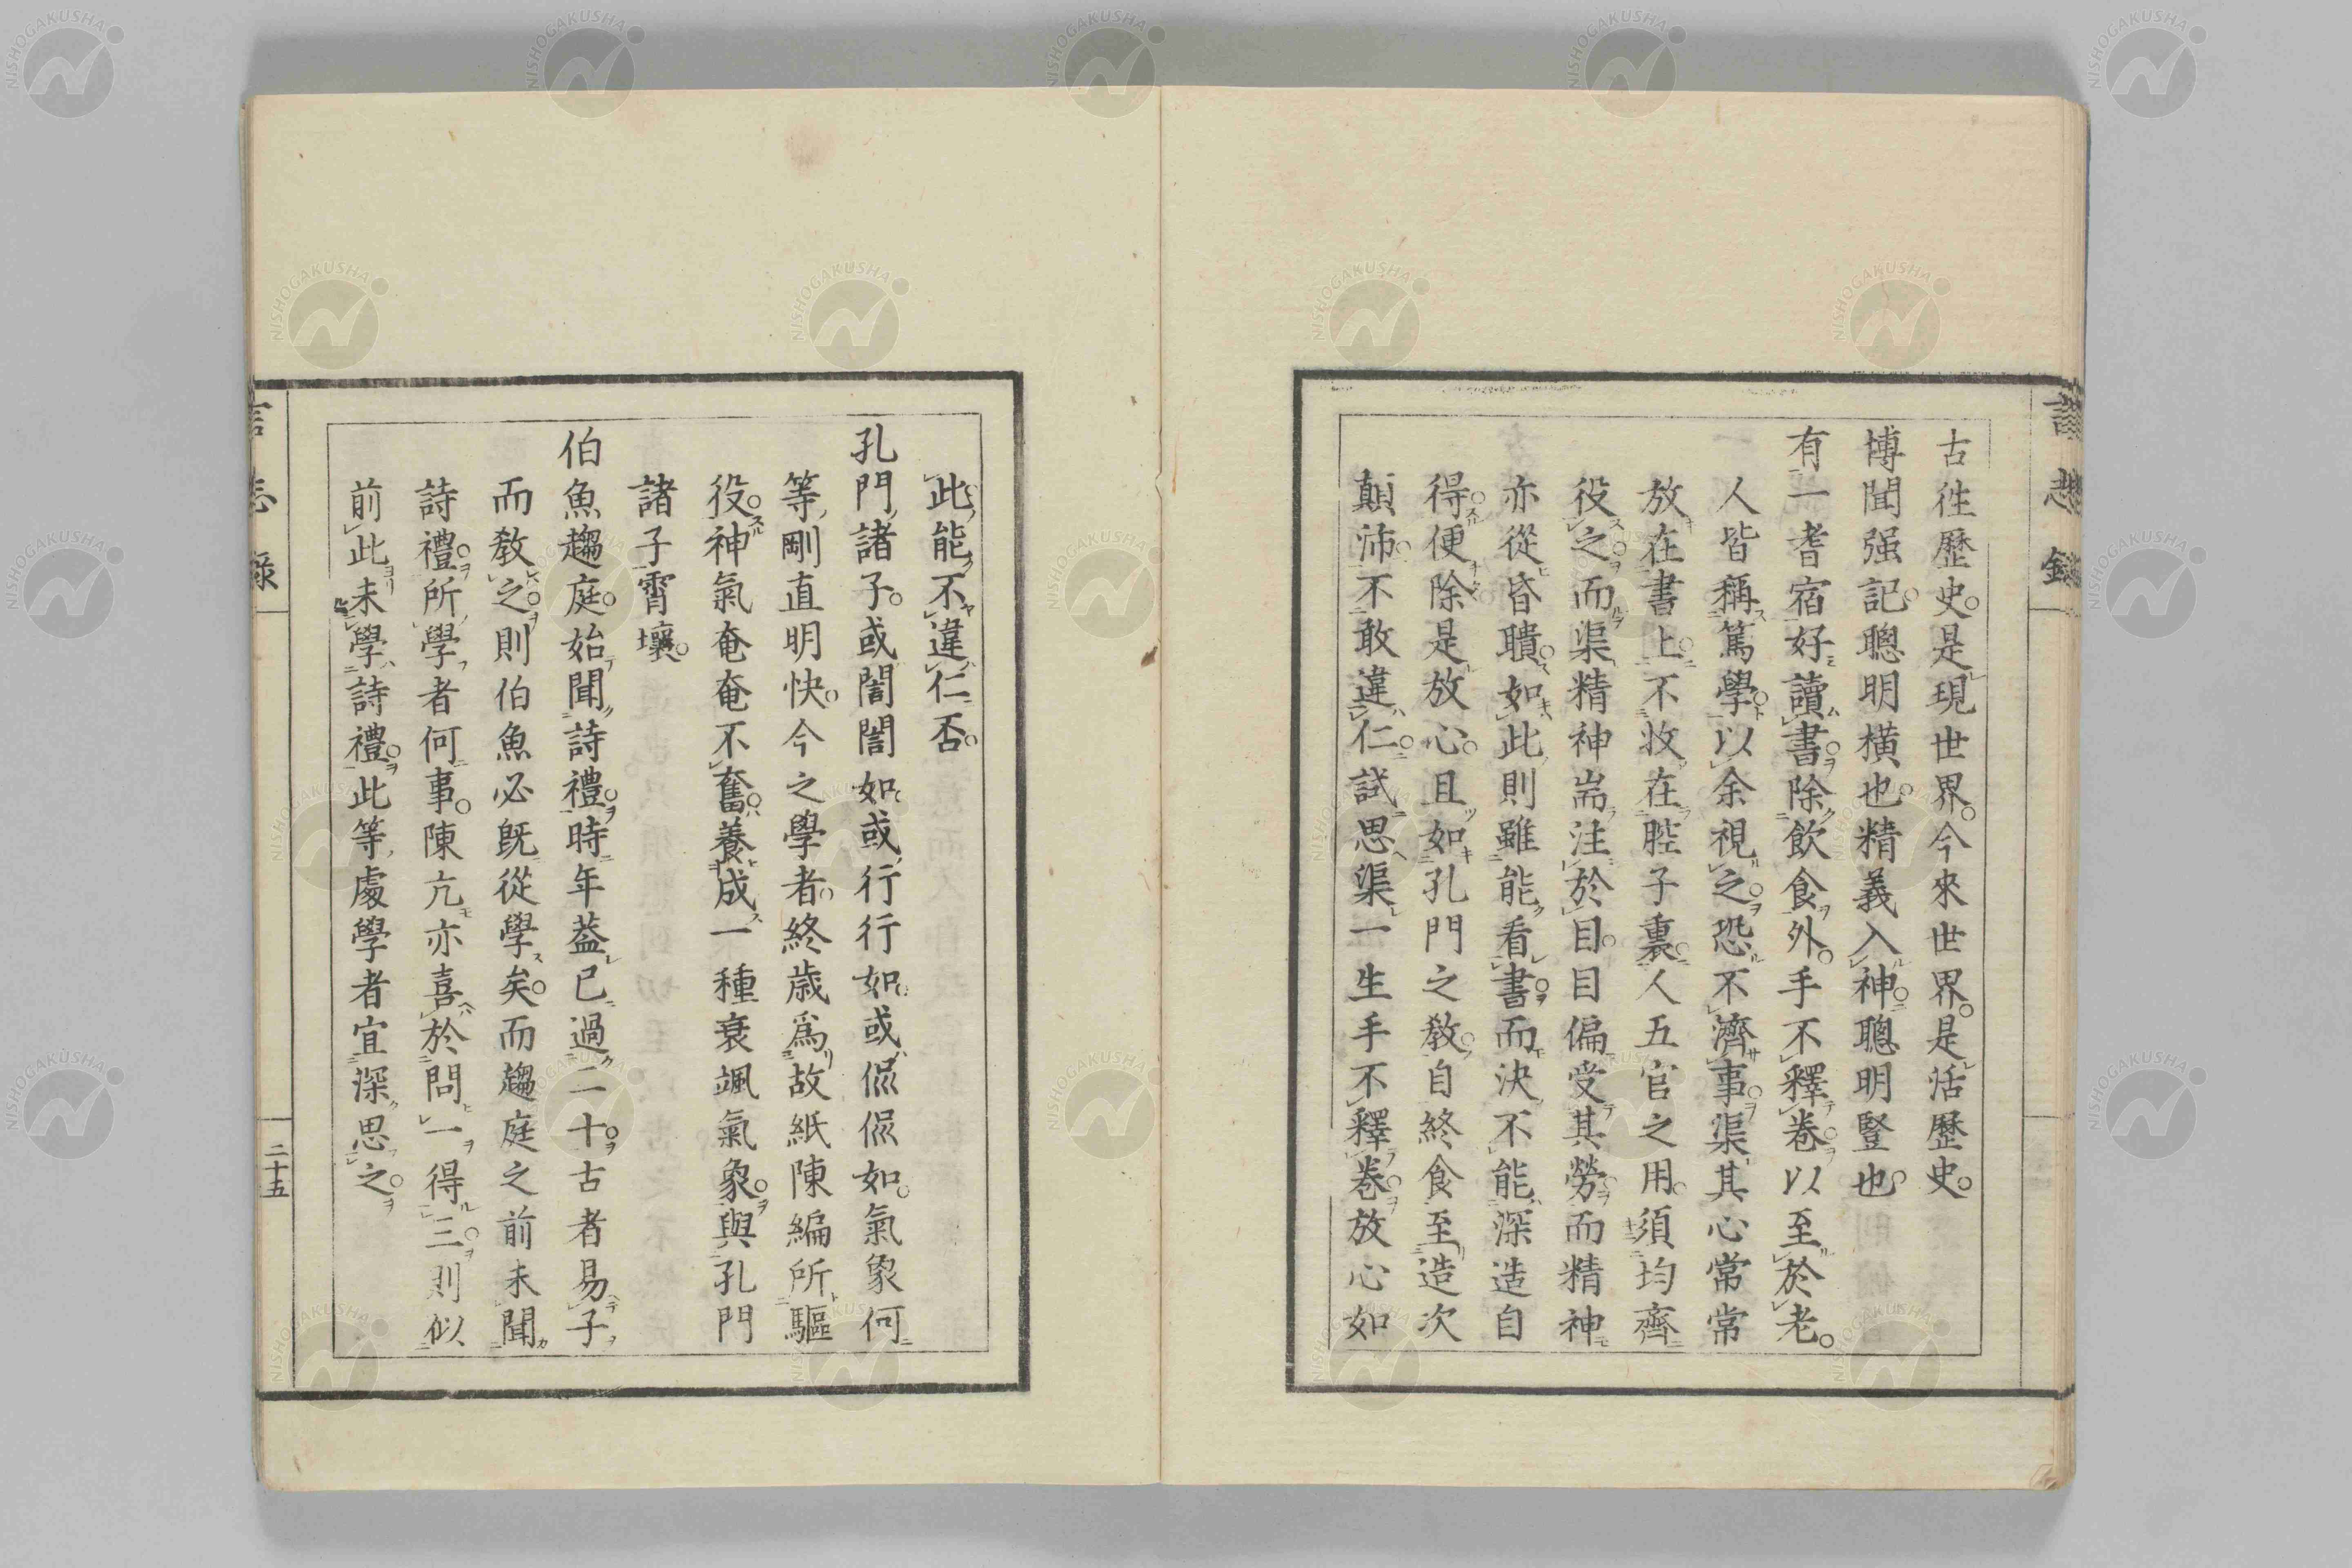 古徃歷史是現世界今來世界是活歷史
博聞强記聰明橫也精義入神聰明豎也
有一耆宿好讀書除飲食外手不釋巻以至於老
人皆稱篤學以余視之恐不濟事渠其心常常
放在書上不收在腔子裏人五官之用須均齊
役之而渠精神耑注於目目偏受其勞而精神
亦從昏聵如此則雖能看書而決不能深造自
得便除是放心且如孔門之教自終食至造次
顛沛不敢違仁試思渠一生手不釋巻放心如
此能不違仁否
孔門諸子或誾誾如或行行如或侃侃如氣象何
等剛直明快今之學者終歳爲故紙陳編所驅
役神氣奄奄不奮養成一種衰颯氣象與孔門
諸子霄壤
伯魚趨庭始聞詩禮時年葢已過二十古者易子
而教之則伯魚必既從學矣而趨庭之前未聞
詩禮所學者何事陳亢亦喜於問一得三則似
前此未學詩禮此等處學者宜深思之
言志錄
二十五
NISHOGAKUSHA